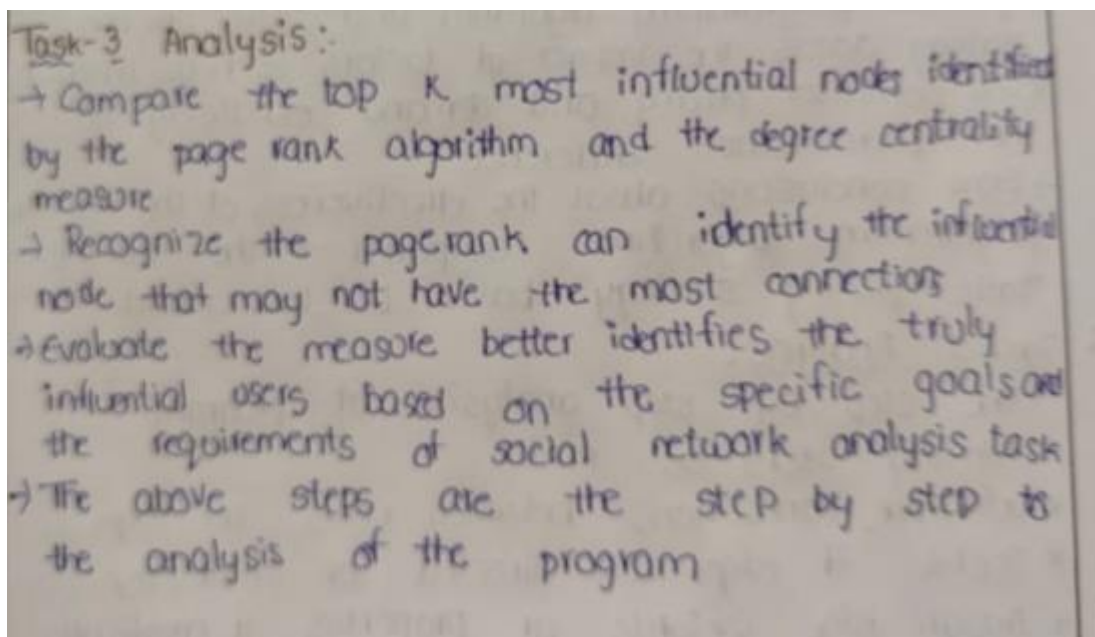 Task-3 Analysis:-
→ Compare the top K most influential nodes identified
by the page rank algorithm and the degree centrality
measure
→ Recognize the pagerank can identify the influential
node that may not have the most connections
→ Evaluate the measure better identifies the truly
influential users based on the specific goals and
the requirements of social network analysis task
→ The above steps are the step by step to
the analysis of the program